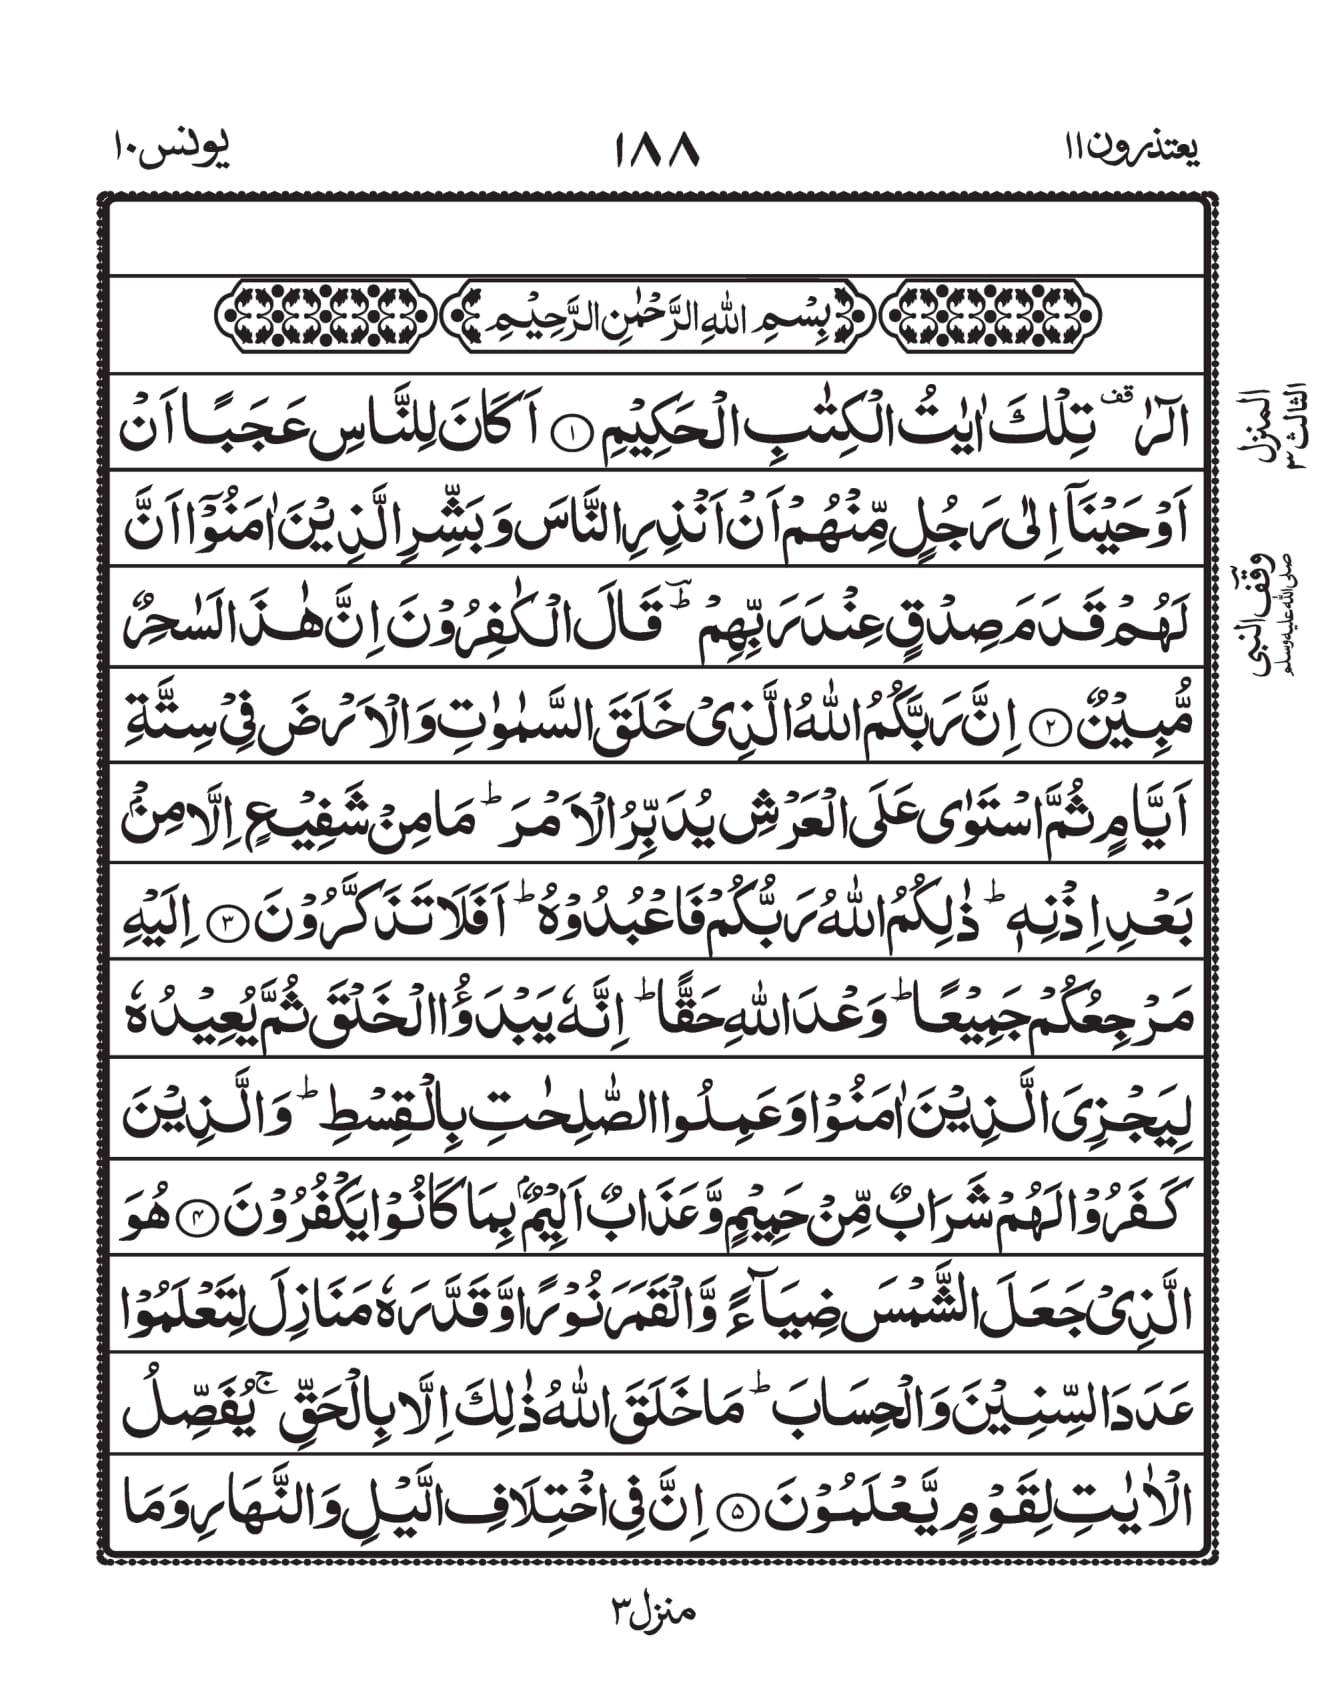 يعتذرون ١١
١٨٨
يونس ١٠
بِسْمِ اللهِ الرَّحْمٰنِ الرَّحِيْمِ
الٓرٰ قف تِلْكَ اٰيٰتُ الْكِتٰبِ الْحَكِيْمِ ١ اَكَانَ لِلنَّاسِ عَجَبًا اَنْ
اَوْحَيْنَآ اِلٰى رَجُلٍ مِّنْهُمْ اَنْ اَنْذِرِ النَّاسَ وَبَشِّرِ الَّذِيْنَ اٰمَنُوْٓا اَنَّ
لَهُمْ قَدَمَ صِدْقٍ عِنْدَ رَبِّهِمْ ؕ قَالَ الْكٰفِرُوْنَ اِنَّ هٰذَا لَسٰحِرٌ
مُّبِيْنٌ ٢ اِنَّ رَبَّكُمُ اللهُ الَّذِىْ خَلَقَ السَّمٰوٰتِ وَالْاَرْضَ فِىْ سِتَّةِ
اَيَّامٍ ثُمَّ اسْتَوٰى عَلَى الْعَرْشِ يُدَبِّرُ الْاَمْرَ ؕ مَا مِنْ شَفِيْعٍ اِلَّا مِنْۢ
بَعْدِ اِذْنِهٖ ؕ ذٰلِكُمُ اللهُ رَبُّكُمْ فَاعْبُدُوْهُ ؕ اَفَلَا تَذَكَّرُوْنَ ٣ اِلَيْهِ
مَرْجِعُكُمْ جَمِيْعًا ؕ وَعْدَ اللهِ حَقًّا ؕ اِنَّهٗ يَبْدَؤُا الْخَلْقَ ثُمَّ يُعِيْدُهٗ
لِيَجْزِىَ الَّذِيْنَ اٰمَنُوْا وَعَمِلُوا الصّٰلِحٰتِ بِالْقِسْطِ ؕ وَالَّذِيْنَ
كَفَرُوْا لَهُمْ شَرَابٌ مِّنْ حَمِيْمٍ وَّعَذَابٌ اَلِيْمٌۢ بِمَا كَانُوْا يَكْفُرُوْنَ ۴ هُوَ
الَّذِىْ جَعَلَ الشَّمْسَ ضِيَآءً وَّالْقَمَرَ نُوْرًا وَّقَدَّرَهٗ مَنَازِلَ لِتَعْلَمُوْا
عَدَدَ السِّنِيْنَ وَالْحِسَابَ ؕ مَا خَلَقَ اللهُ ذٰلِكَ اِلَّا بِالْحَقِّ ۚ يُفَصِّلُ
الْاٰيٰتِ لِقَوْمٍ يَّعْلَمُوْنَ ۵ اِنَّ فِى اخْتِلَافِ الَّيْلِ وَالنَّهَارِ وَمَا
المنزل
الثالث ٣
وقف النبى
صلى الله عليه وسلم
منزل ٣